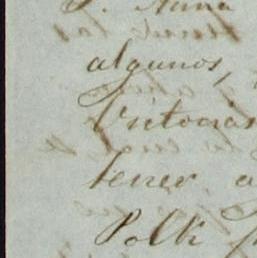 S. Anna
algunos,
Victorias
tener, a
Polk